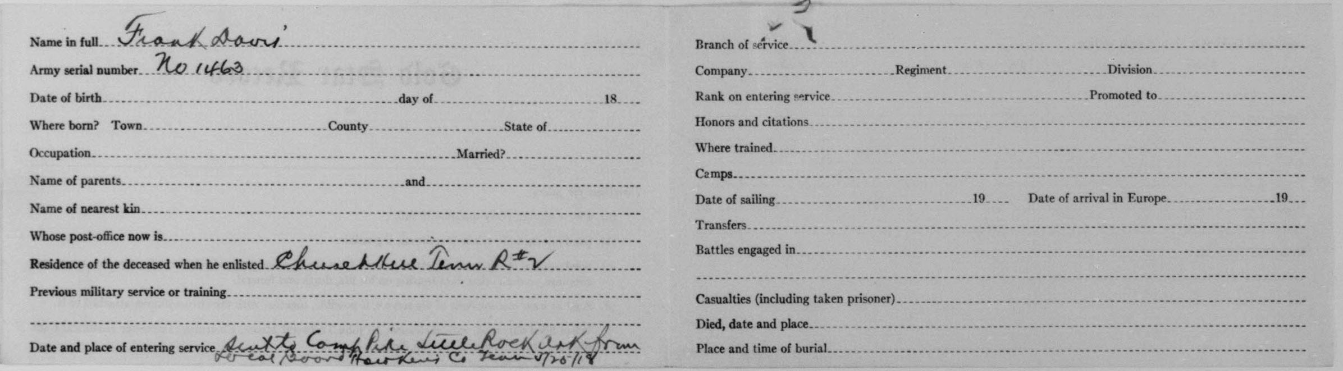 Name in full Frank Davis
Army serial number No 1463
Date of birth day of 18
Where born? Town County State of
Occupation Married?
Name of parents and
Name of nearest kin
Whose post-office now is
Residence of the deceased when he enlisted Church Hill Tenn R#2
Previous military service or training
Date and place of entering service Sent to Camp Pike Little Rock Ark from
Local Board Hawkins Co Tenn
Branch of service
Company Regiment Division
Rank on entering service Promoted to
Honors and citations
Where trained
Camps
Date of sailing 19 Date of arrival in Europe 19
Transfers
Battles engaged in
Casualties (including taken prisoner)
Died, date and place
Place and time of burial